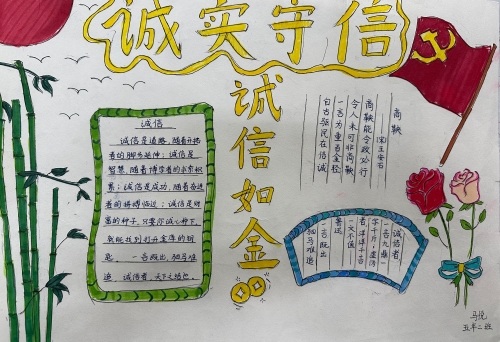 诚实守信
诚信如金
诚信
诚信是道路，随着开拓
者的脚步延伸；诚信是
智慧，随着博学者的求索积
累；诚信是成功，随着奋进
者的拼搏临近；诚信是财
富的种子，只要你诚心种下，
就能找到打开金库的钥
匙。一言既出，驷马难
追，诚信者，天下之结也。
商鞅
宋王安石
自古驱民在信诚
一言为重百金轻
令人未可非商鞅
商鞅能令政必行
诚信者
一言九鼎，一
字千斤；虚伪
者，洋洋千言
一文不值
善述
一言既出
驷马难追
马悦
五年二班